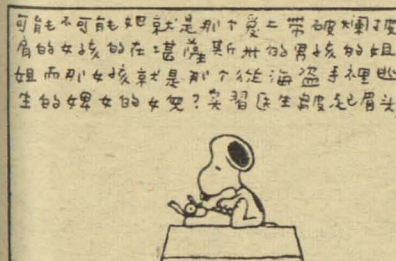 可能不可能她就是那个爱上带破烂披
肩的女孩的在堪薩斯州的男孩的姐
姐而那女孩就是那个從海盗手裡逃
生的婢女的女兒？实習医生皱起眉头